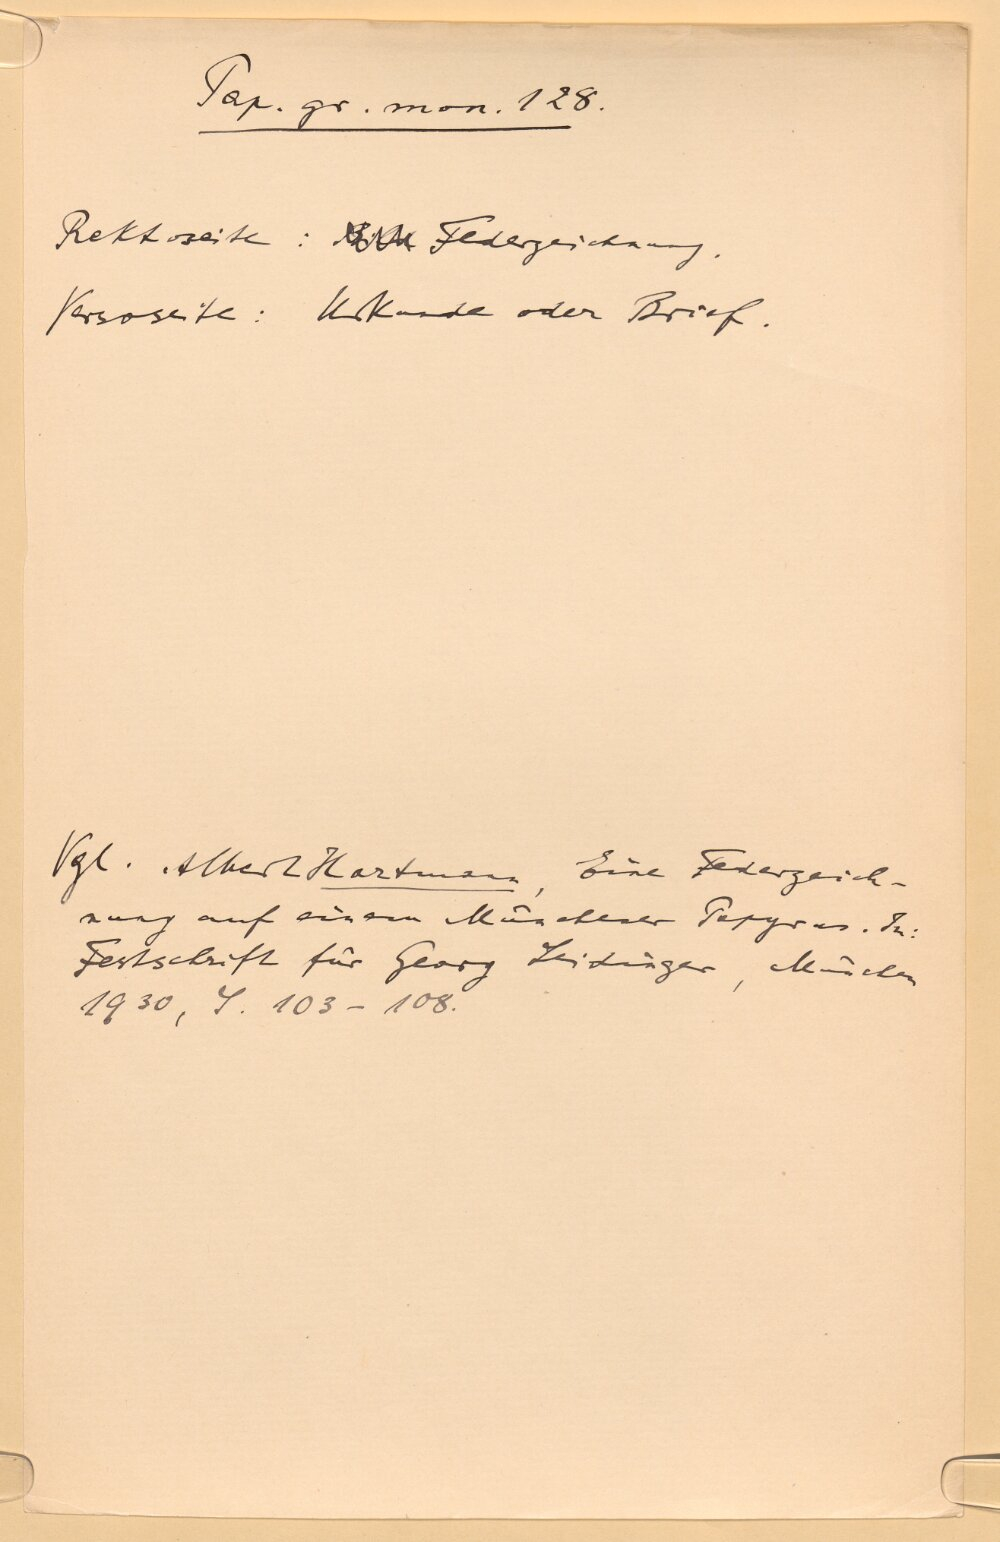 Pap. gr. mon. 128.
Rektoseite: Federzeichnung.
Versoseite: Urkunde oder Brief.
Vgl. Albert Hartmann, Eine Federzeich-
nung auf einem Münchener Papyrus. In:
Festschrift für Georg Leidinger, München
1930, S. 103-108.